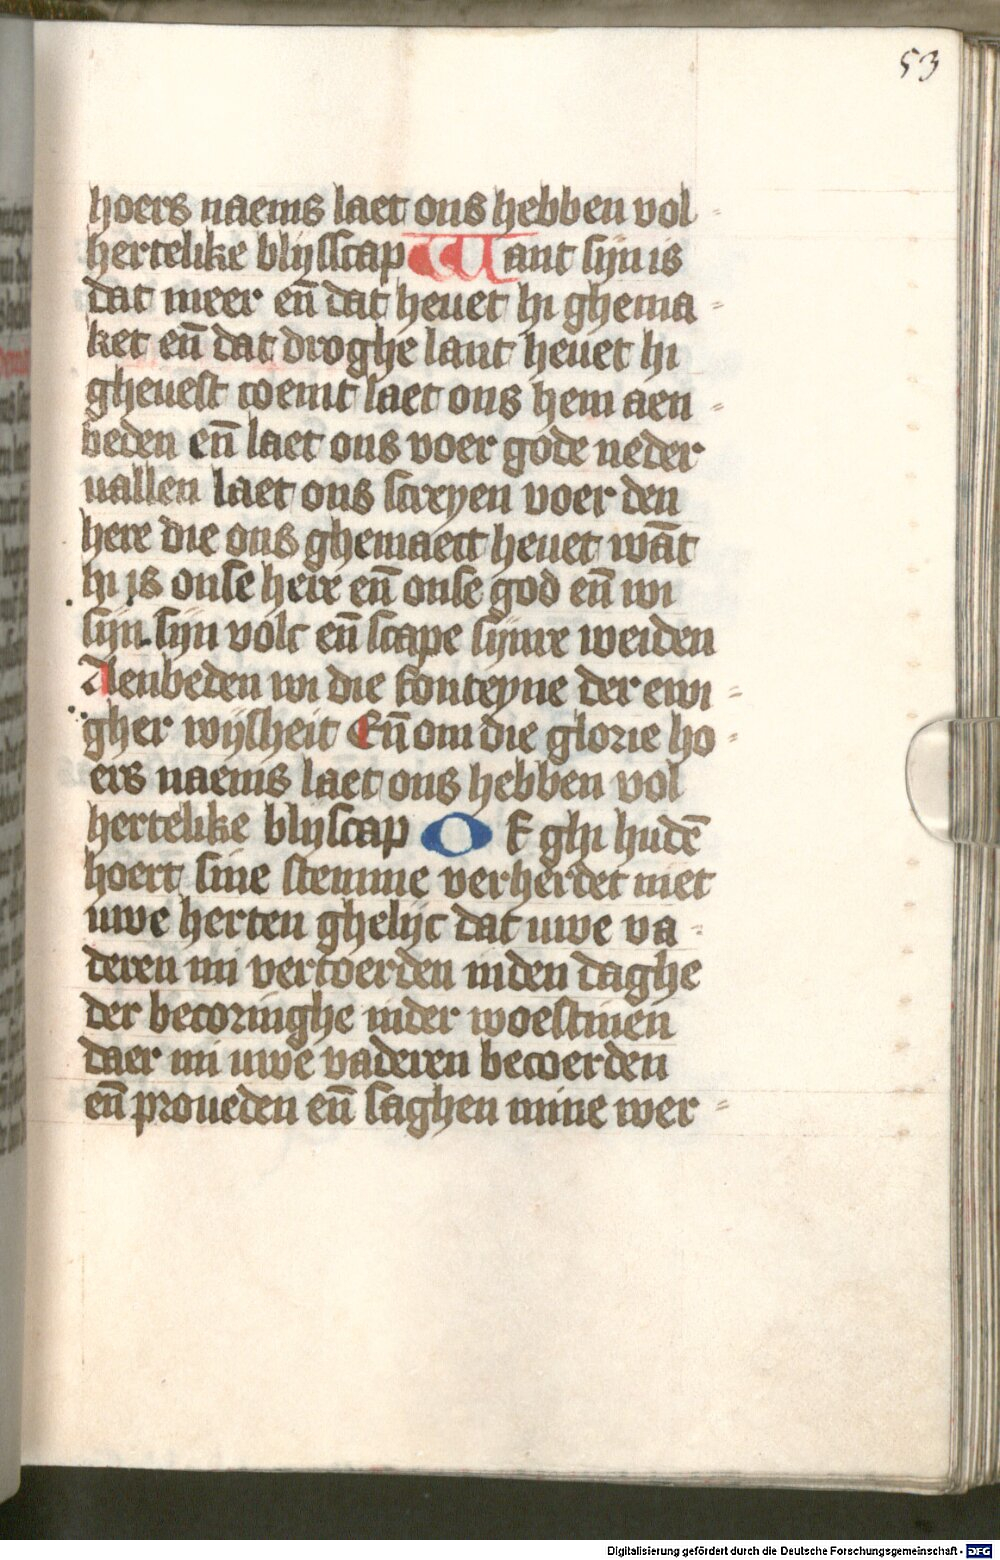 53
hoers naems laet ons hebben vol⸗
hertelike blijsscap Want sijn is
dat meer en̄ dat heuet hi ghema⸗
ket en̄ dat droghe lant heuet hi
gheuest coemt laet ons hem aen⸗
beden en̄ laet ons voer gode neder
uallen laet ons screyen voer den
here die ons ghemaect heuet wāt
hi is onse here en̄ onse god en̄ wi
sijn sijn volc en̄ scape sijnre weiden
Aenbeden wi die fonteyne der ewi⸗
gher wijsheit En̄ om die glorie ho⸗
ers naems laet ons hebben vol
hertelike blijscap O E ghi hudē
hoert sine stemme verherdet niet
uwe herten ghelijc dat uwe va⸗
deren mi vertoerden inden daghe
der becoringhe inder woestinen
daer mi uwe vaderen becoerden
en̄ proueden en̄ saghen mine wer⸗
Digitalisierung gefördert durch die Deutsche Forschungsgemeinschaft - DFG